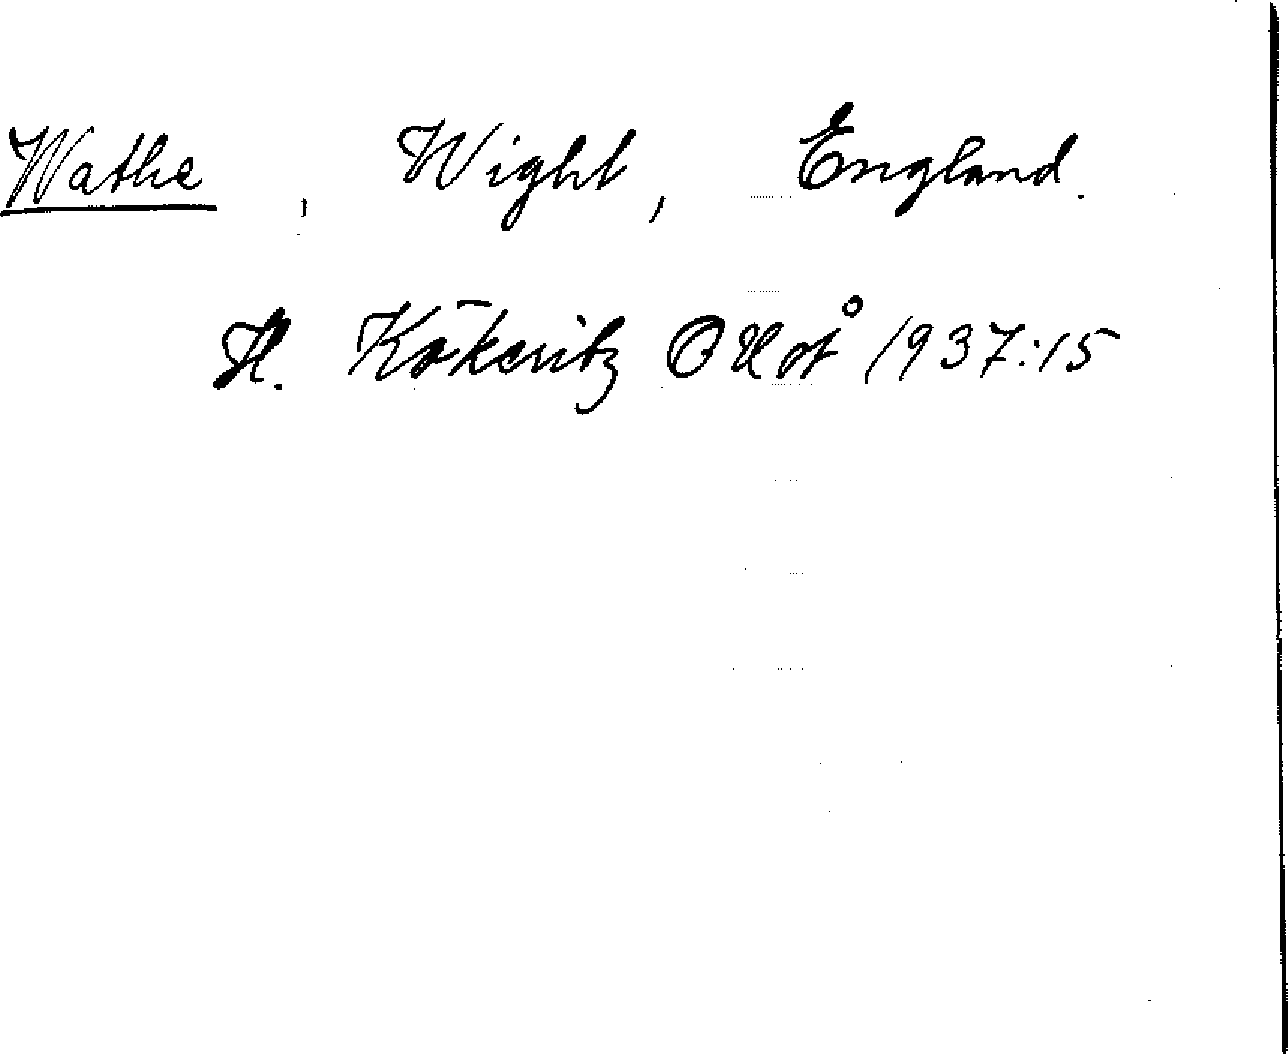 Wathe, Wight, England.
H. Kökeritz OUoÅ 1937:15